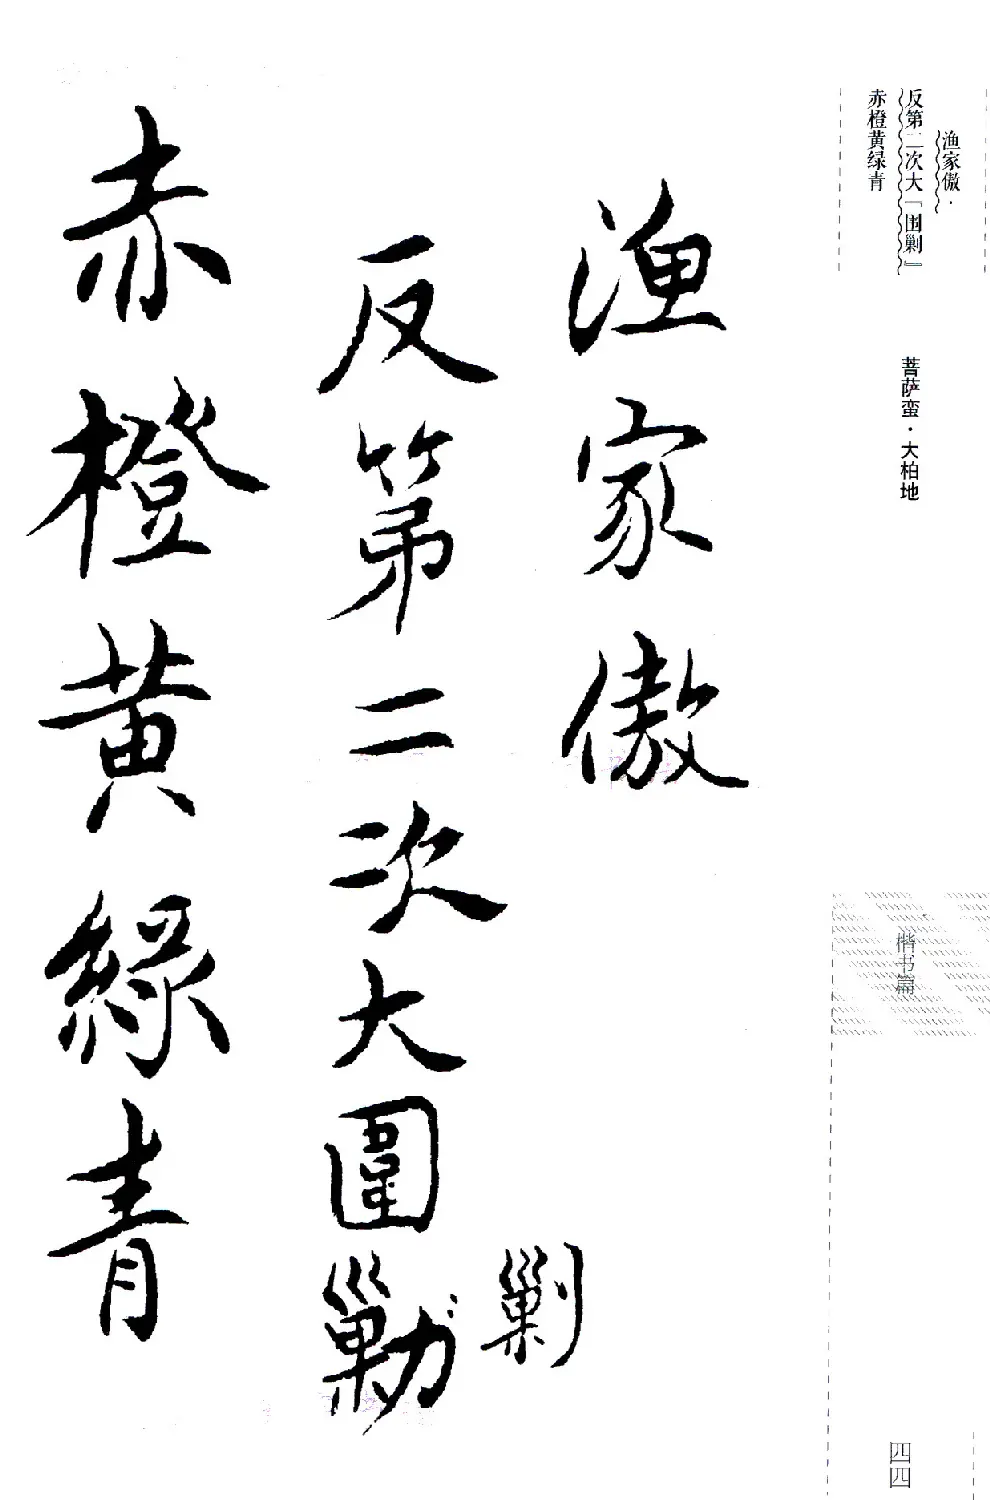 渔家傲·
反第二次大「围剿』
赤橙黄绿青
菩萨蛮·大柏地
楷书篇
四四
渔家傲
反第二次大圍勦
剿
赤橙黄綠青